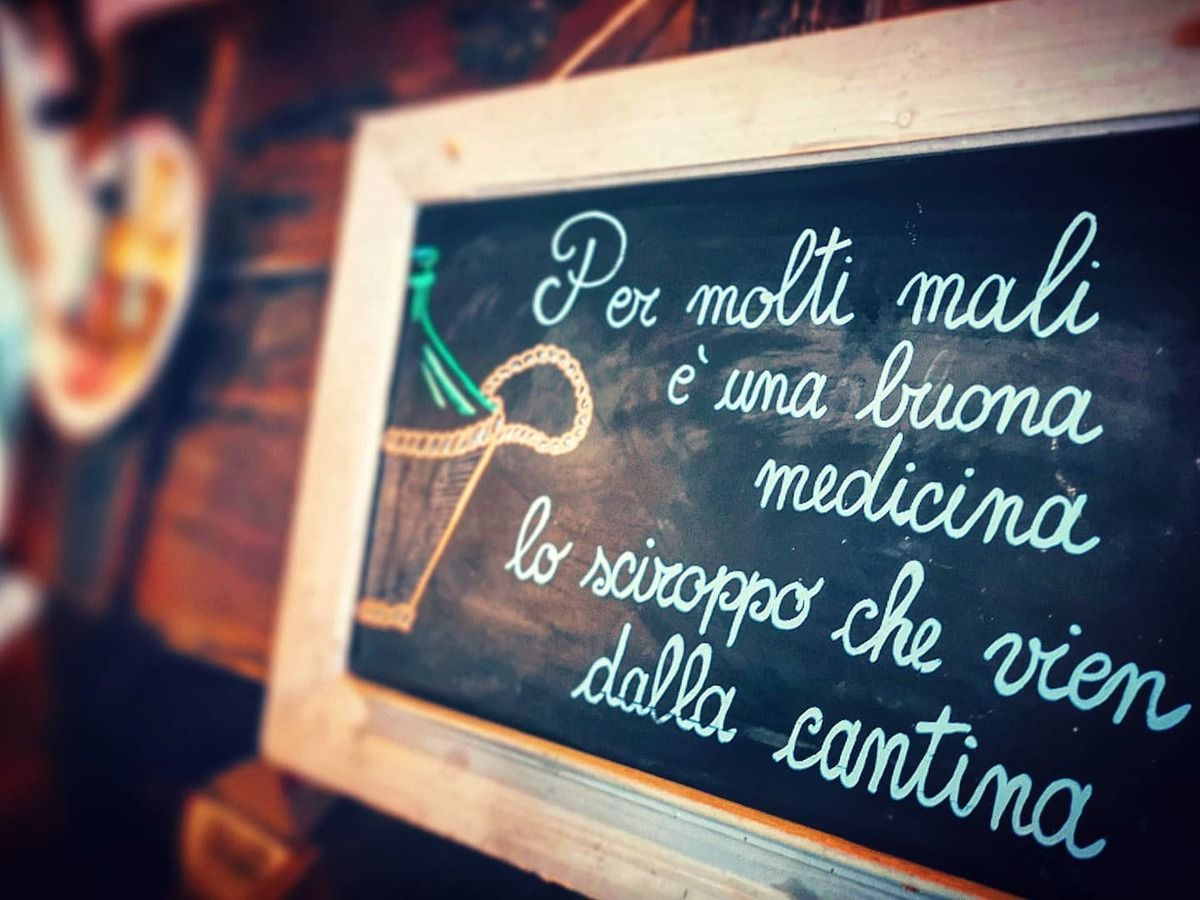 Per molti mali
è una buona
medicina
lo sciroppo che vien
dalla cantina